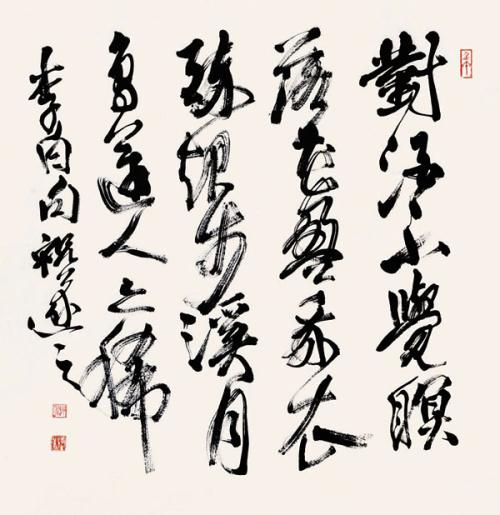 對酒不覺暝
落花盈我衣
醉起步溪月
鳥還人亦稀
李白